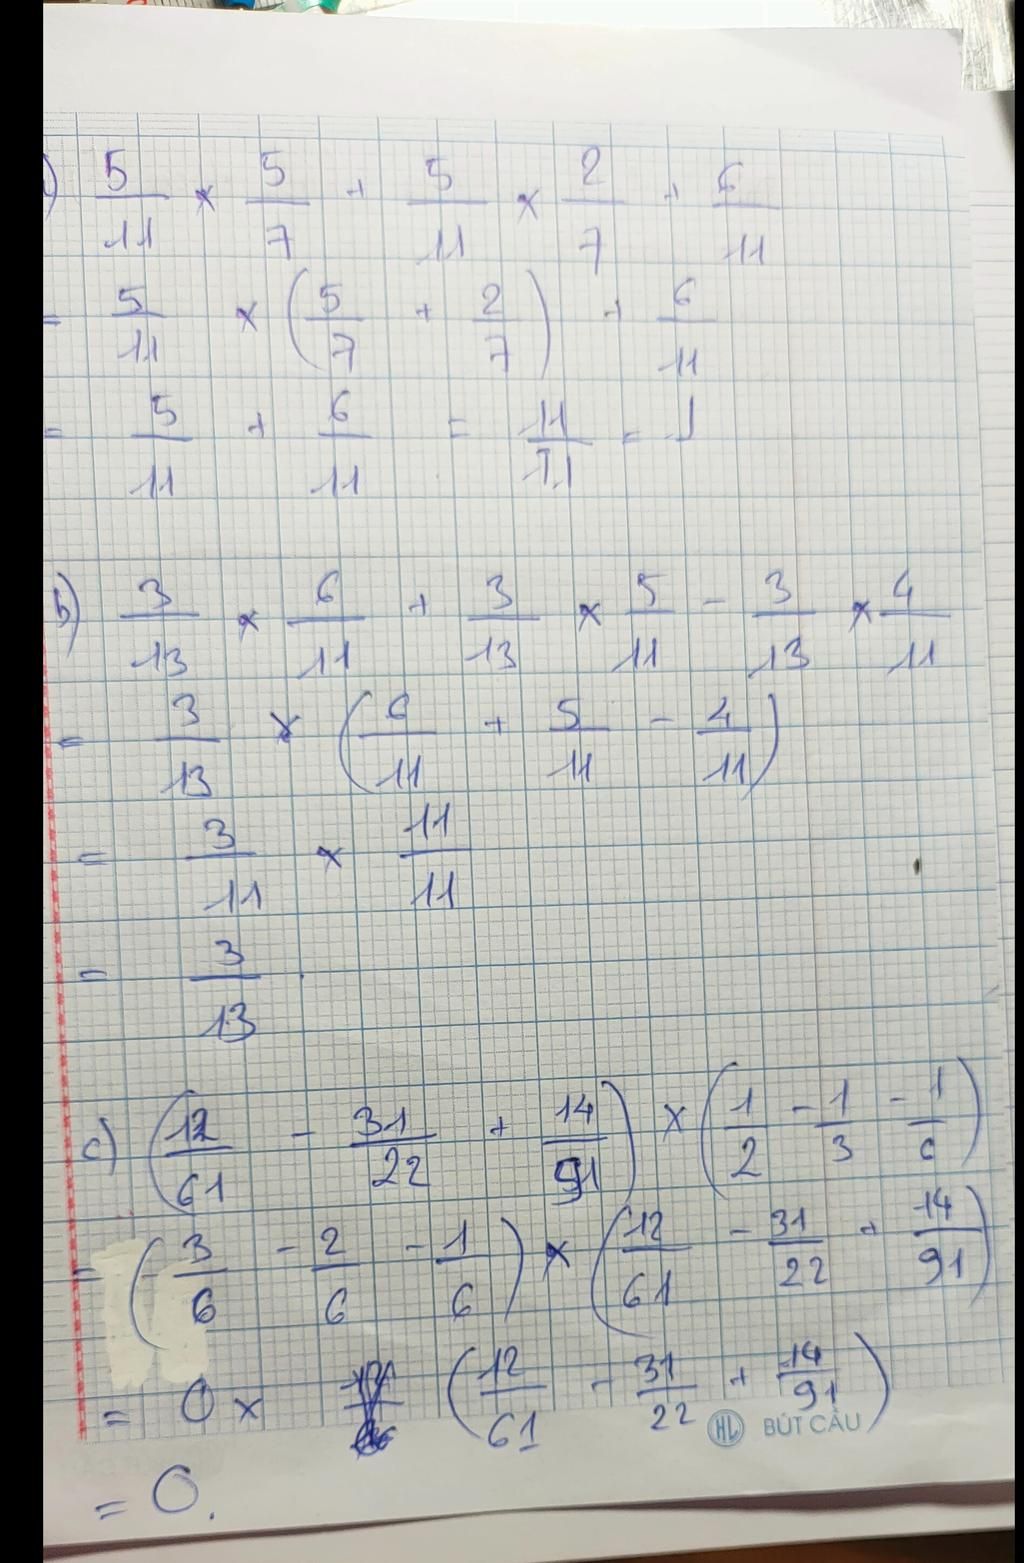 ) 5/11 × 5/7 + 5/11 × 2/7 + 6/11
= 5/11 × (5/7 + 2/7) + 6/11
= 5/11 + 6/11 = 11/11 = 1
b) 3/13 × 6/11 + 3/13 × 5/11 - 3/13 × 4/11
= 3/13 × (6/11 + 5/11 - 4/11)
= 3/11 × 11/11
= 3/13
c) (12/61 - 31/22 + 14/91) × (1/2 - 1/3 - 1/6)
= (3/6 - 2/6 - 1/6) × (12/61 - 31/22 + 14/91)
= 0 × (12/61 - 31/22 + 14/91)
HL BÚT CẦU
= 0.